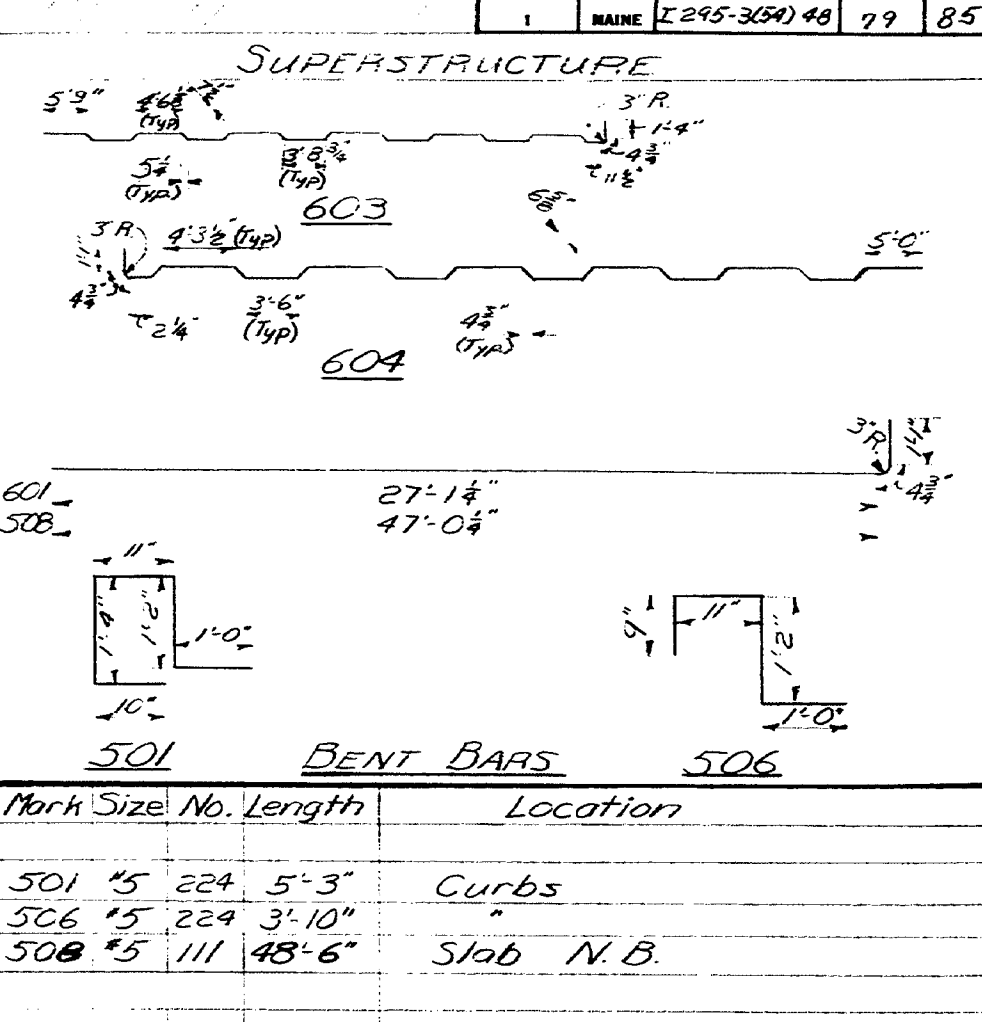 1 MAINE I 295-3(54) 48 79 85
SUPERSTRUCTURE
5'9" 4'6½" 7½" 3" R.
(Typ) 1'-4"
5¼" 3'8¾" 4¾"
(Typ.) (Typ) 11½"
603
6⅝"
3" R. 4'3½" (Typ) 5'-0"
1'-1"
4¾" 3'-6" 4¾"
2¼" (Typ) (Typ)
604
3" R. 1'-1"
601 27'-1¼" 4¾"
508 47'-0¼"
11"
1'-4" 1'-2" 1'-0" 9" 11" 1'-2"
10" 1'-0"
501 BENT BARS 506
Mark Size No. Length Location
501 #5 224 5'-3" Curbs
506 #5 224 3'-10" "
508 #5 111 48'-6" Slab N. B.